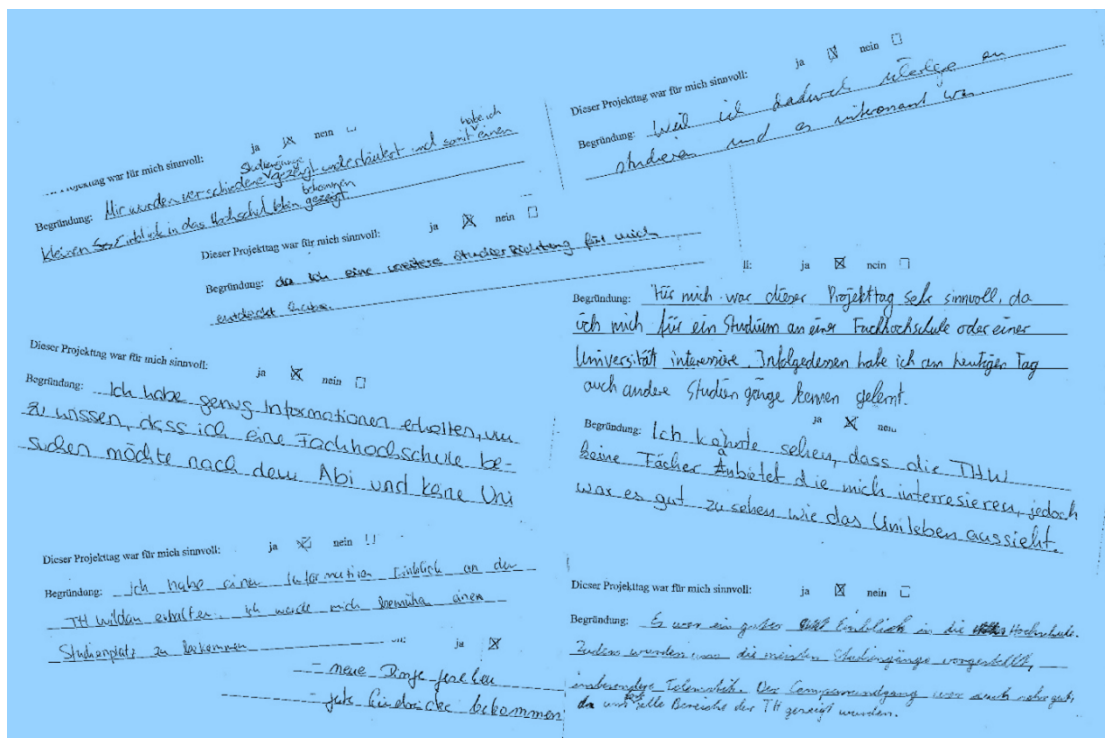 Projekttag war für mich sinnvoll: ja nein
Studiengänge habe ich
Begründung: Mir wurden verschiedene gezeigt und erläutert und somit einen
kleinen Einblick in das Hochschulleben gezeigt bekommen
Dieser Projekttag war für mich sinnvoll: ja nein
Begründung: Weil ich dadurch überlege zu
studieren und es interessant war.
Dieser Projekttag war für mich sinnvoll: ja nein
Begründung: da ich eine weitere Studienrichtung für mich
entdeckt habe.
ll: ja nein
Begründung: Für mich war dieser Projekttag sehr sinnvoll, da
ich mich für ein Studium an einer Fachhochschule oder einer
Universität interessiere. Infolgedessen habe ich am heutigen Tag
auch andere Studiengänge kennen gelernt.
Dieser Projekttag war für mich sinnvoll: ja nein
Begründung: Ich habe genug Informationen erhalten, um
zu wissen, dass ich eine Fachhochschule be-
suchen möchte nach dem Abi und keine Uni
ja nein
Begründung: Ich konnte sehen, dass die THW
keine Fächer Anbietet die mich interresieren, jedoch
war es gut zu sehen wie das Unileben aussieht.
Dieser Projekttag war für mich sinnvoll: ja nein
Begründung: Ich habe einen Einblick an der
TH Wildau erhalten. Ich werde mich bemühen einen
Studienplatz zu bekommen
ja
- neue Dinge gesehen
- gute Eindrücke bekommen
Dieser Projekttag war für mich sinnvoll: ja nein
Begründung: Es war ein guter Einblick in die Hochschule.
Zudem wurden uns die meisten Studiengänge vorgestellt,
insbesondere Telematik. Der Campusrundgang war auch sehr gut,
da uns alle Bereiche der TH gezeigt wurden.